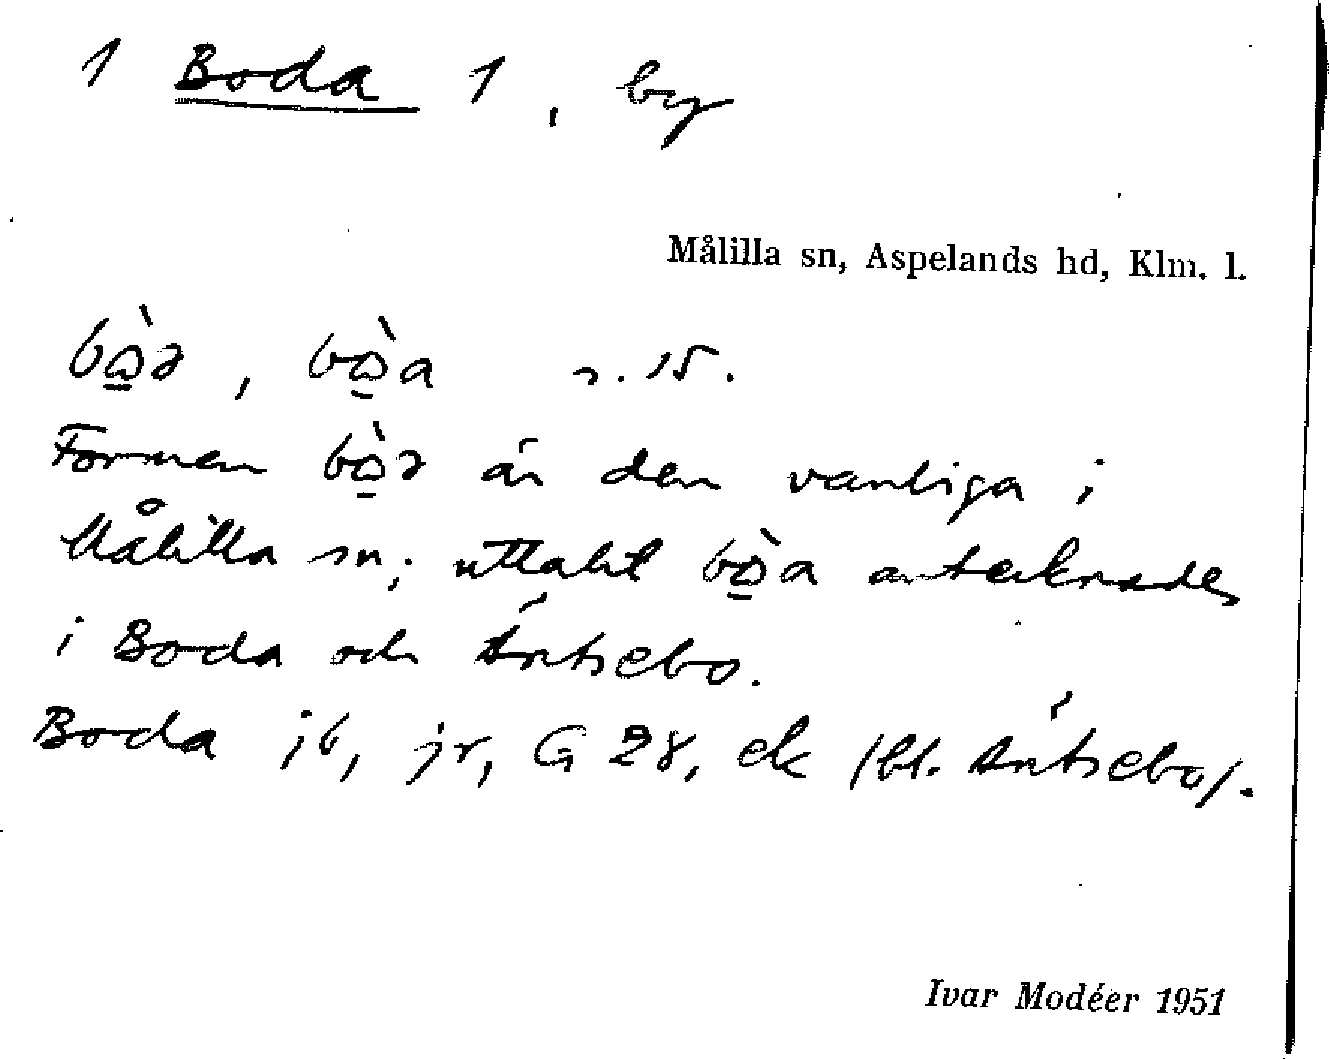 1 Boda 1, by
Målilla sn, Aspelands hd, Klm. l.
bὼ̱ə, bὼ̱a s. 15.
Formen bὼ̱ə är den vanliga i
Målilla sn; uttalet bὼ̱a antecknades
i Boda och Äntsebo.
Boda jb, jr, G 28, ek /bl. Äntsebo/.
Ivar Modéer 1951